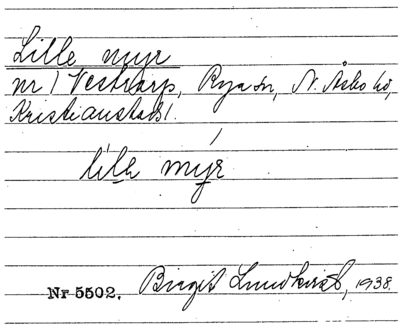 Lille myr
nr 1 Vestrarp, Rya sn, N. Åsbo hd,
Kristianstads l.
lilə myr
Nr 5502. Birgit Lundkvist, 1938.